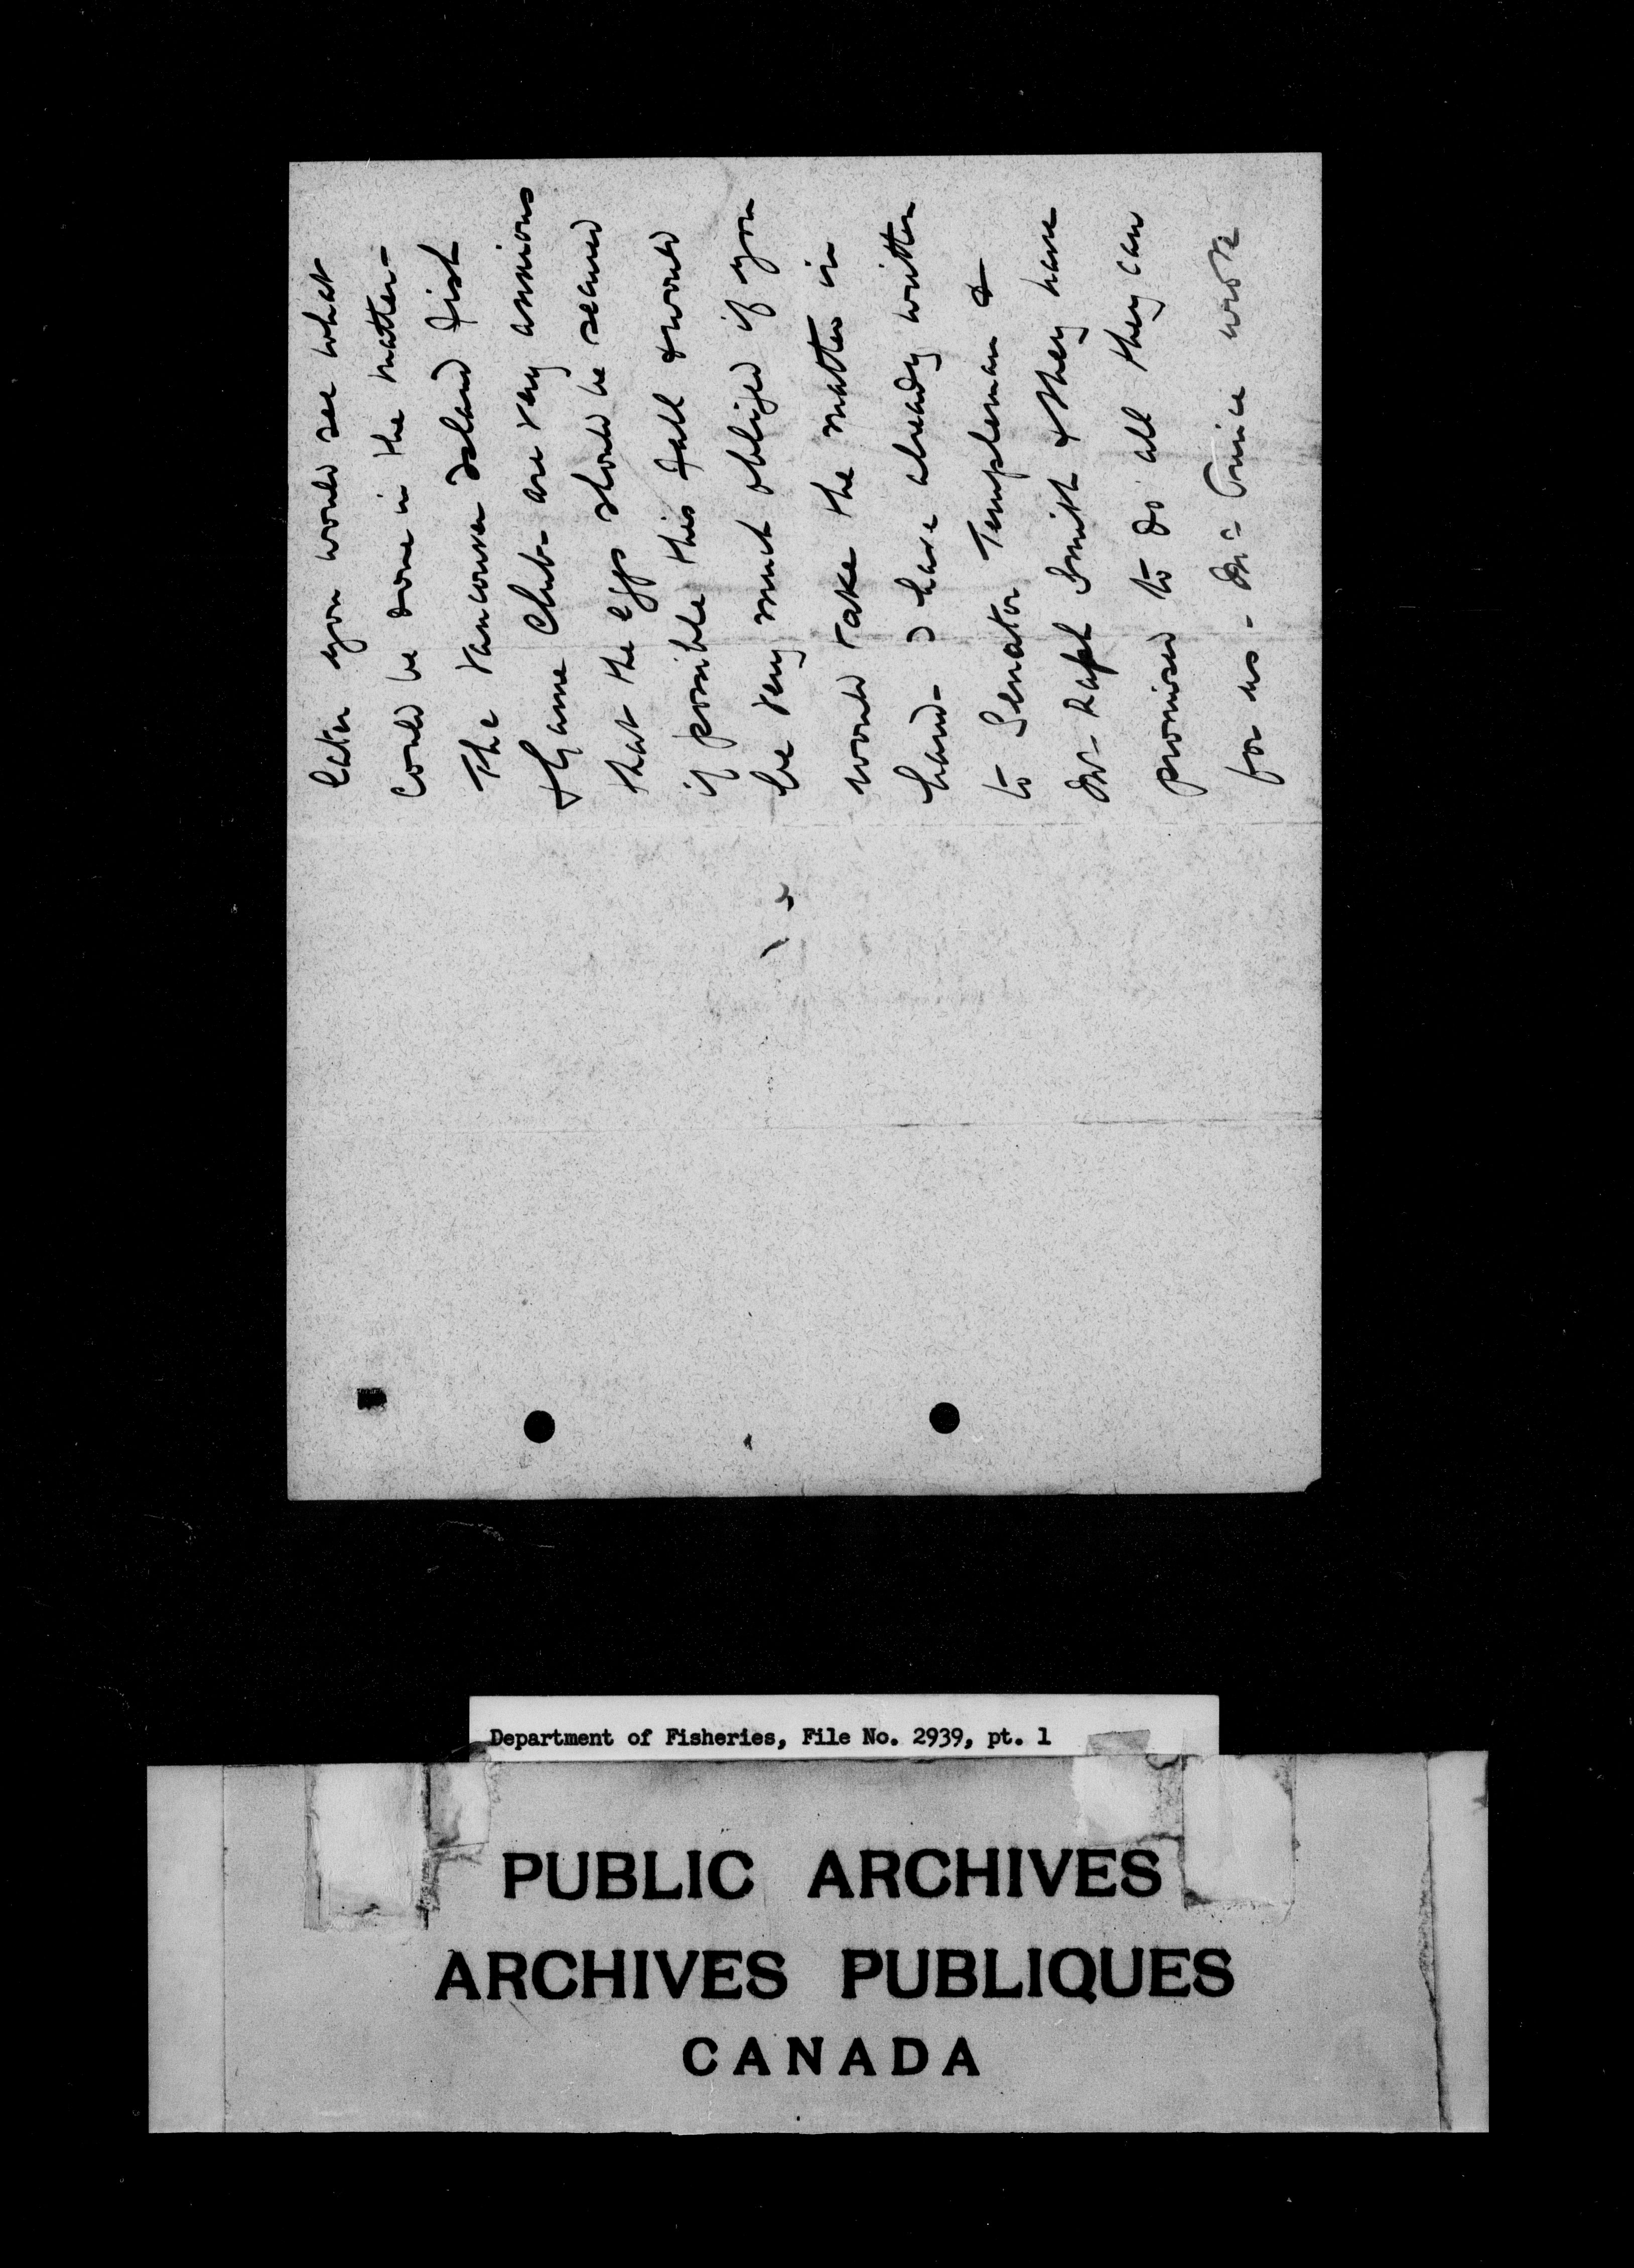 later you would see what
could be done in the matter-
The Vancouver Island Fish
& Game Club- are very anxious
that the eggs should be secured
if possible this fall & would
be very much obliged if you
would take the matter in
hand- I have already written
to Senator Templeman &
Mr- Ralph Smith & they have
promised to do all they can
for us- Mr- Prince wrote
Department of Fisheries, File No. 2939, pt. 1
PUBLIC ARCHIVES
ARCHIVES PUBLIQUES
CANADA